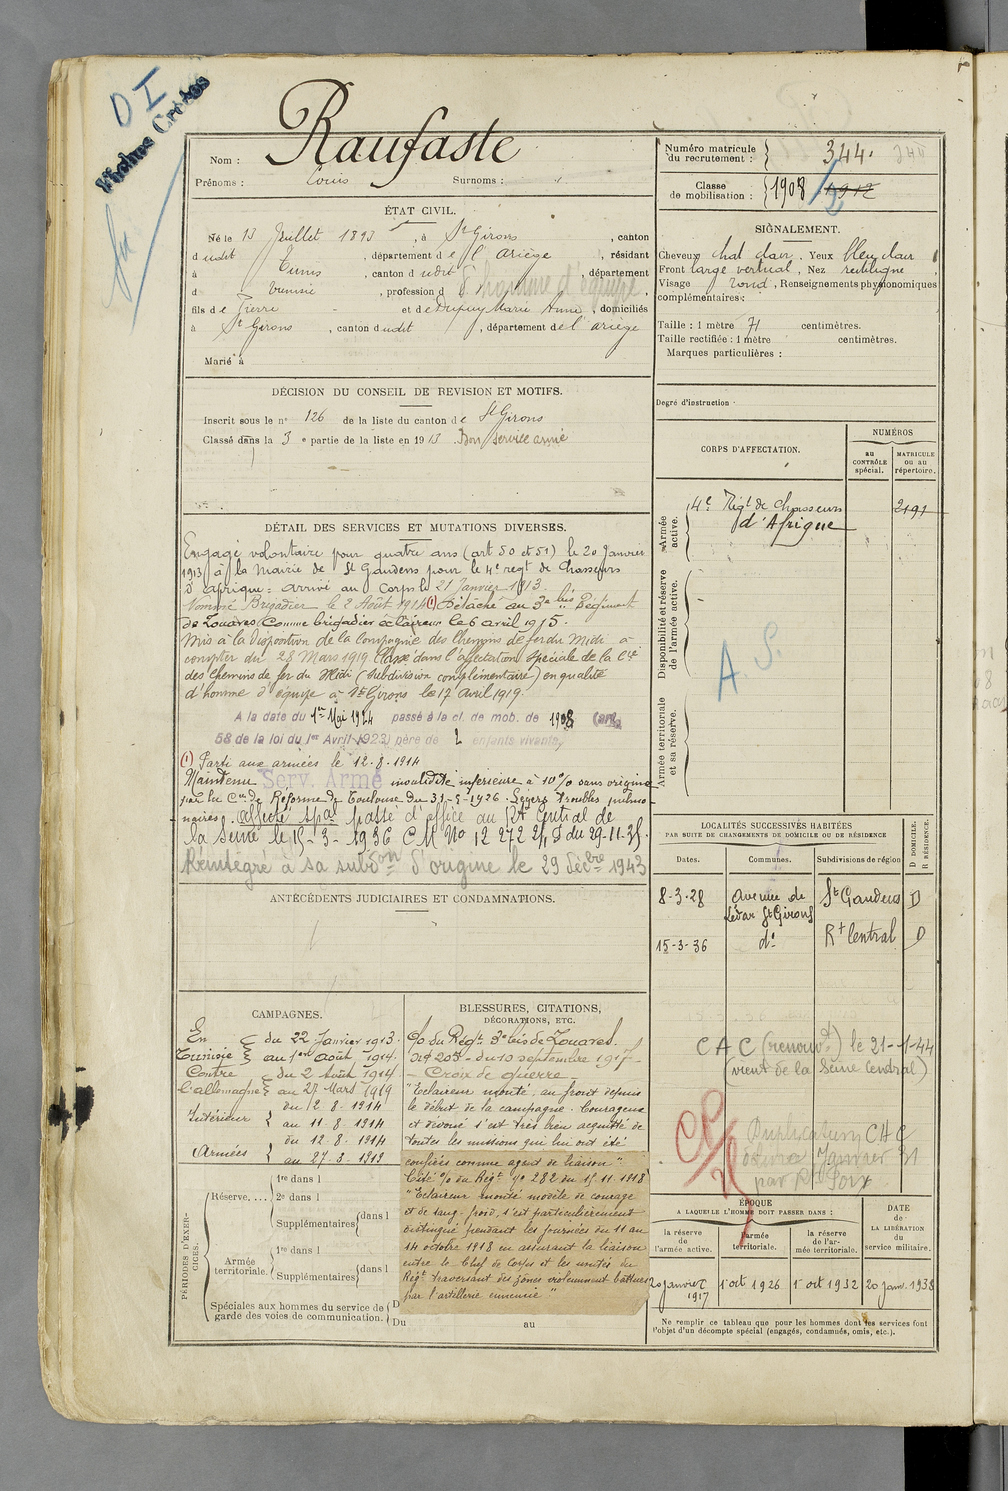 D I
Fiches Croisées
Nom : Raufaste
Prénoms : Louis Surnoms :
Numéro matricule du recrutement : 344.
Classe de mobilisation : 1908 1912
ÉTAT CIVIL.
Né le 13 Juillet 1893, à St Girons, canton
dudit, département de l'Ariège, résidant
à Tunis, canton dudit, département
d Tunisie, profession d d'homme d'équipe,
fils de Pierre et de Dupuy Marie Anne, domiciliés
à St Girons, canton dudit, département de l'ariège
Marié à
SIGNALEMENT.
Cheveux chat clair. Yeux bleu clair
Front large vertical, Nez rectiligne
Visage rond, Renseignements physionomiques
complémentaires :
Taille : 1 mètre 71 centimètres.
Taille rectifiée : 1 mètre centimètres.
Marques particulières :
Degré d'instruction
DÉCISION DU CONSEIL DE REVISION ET MOTIFS.
Inscrit sous le n° 126 de la liste du canton de St Girons
Classé dans la 3e partie de la liste en 1913 Bon service armé
CORPS D'AFFECTATION.
NUMÉROS
au CONTRÔLE spécial.
MATRICULE ou au répertoire.
Armée active.
4e Régt de Chasseurs 2191
d'Afrique
Disponibilité et réserve de l'armée active.
A. S.
Armée territoriale et sa réserve.
DÉTAIL DES SERVICES ET MUTATIONS DIVERSES.
Engagé volontaire pour quatre ans (art 50 et 51) le 20 Janvier
1913 à la Mairie de St Gaudens pour le 4e regt de Chasseurs
d'afrique = arrivé au Corps le 21 Janvier 1913.
Nommé Brigadier le 2 Août 1914 (1) Détaché au 3e bis Régiment
de Zouaves (Comme brigadier éclaireur le 6 avril 1915.
Mis à la disposition de la Compagnie des Chemins de fer du Midi à
compter du 28 Mars 1919 Classé dans l'affectation spéciale de la Cie
des Chemins de fer du Midi (subdivision complémentaire) en qualité
d'homme d'équipe à St Girons le 17 Avril 1919.
A la date du 1er Mai 1924 passé à la cl. de mob. de 1908 (art.
58 de la loi du 1er Avril 1923) père de 2 enfants vivants.
(1) Parti aux armées le 12.8.1914
Maintenu Serv. Armé invalidité inférieure à 10% sans origine
par la Con de Réforme de Toulouse du 31-5-1926. Légers troubles pulmo-
naires. affecté spal passé d'office au Rt Central de
la Seine le 15-3-1936 CM No 12272 2/1 S du 29-11-35.
Réintégré à sa subdon d'origine le 29 Décbre 1943
ANTÉCÉDENTS JUDICIAIRES ET CONDAMNATIONS.
LOCALITÉS SUCCESSIVES HABITÉES
PAR SUITE DE CHANGEMENTS DE DOMICILE OU DE RÉSIDENCE
Dates. Communes. Subdivisions de région D DOMICILE. R RÉSIDENCE.
8-3-28 Avenue de St Gaudens D
Lédar St Girons
15-3-36 do Rt Central D
CAC (renouvt) le 21-1-44
(vient de la Seine Central)
CAMPAGNES.
En Tunisie du 22 Janvier 1913.
au 1er Août 1914.
Contre l'allemagne du 2 Août 1914
au 27 Mars 1919
Intérieur du 2-8-1914
au 11-8-1914
Armées du 12-8-1914
au 27-3-1919
BLESSURES, CITATIONS,
DÉCORATIONS, ETC.
O/ du Régt 3e bis de Zouaves.
No 208 - du 10 septembre 1917
- Croix de guerre -
"Eclaireur monté, au front depuis
le début de la campagne. Courageux
et dévoué s'est très bien acquitté de
toutes les missions qui lui ont été
confiées comme agent de liaison".
Cité O/ du Régt No 282 du 15.11.1918
"Eclaireur monté modèle de courage
et de sang-froid, s'est particulièrement
distingué pendant les journées du 11 au
14 octobre 1918 en assurant la liaison
entre le Chef de Corps et les unités du
Régt traversant des zones violemment battues
par l'artillerie ennemie"
PÉRIODES D'EXERCICES.
Réserve....
1re dans l
2e dans l
Supplémentaires dans l
Armée territoriale.
1re dans l
Supplémentaires dans l
Spéciales aux hommes du service de
garde des voies de communication.
Du au
Duplication CAC
Janvier 31
ÉPOQUE
A LAQUELLE L'HOMME DOIT PASSER DANS :
la réserve de l'armée active. l'armée territoriale. la réserve de l'armée territoriale.
DATE de LA LIBÉRATION du service militaire.
20 janvier 1917 1er oct 1926 1er oct 1932 20 janv. 1938
Ne remplir ce tableau que pour les hommes dont les services font
l'objet d'un décompte spécial (engagés, condamnés, omis, etc.).